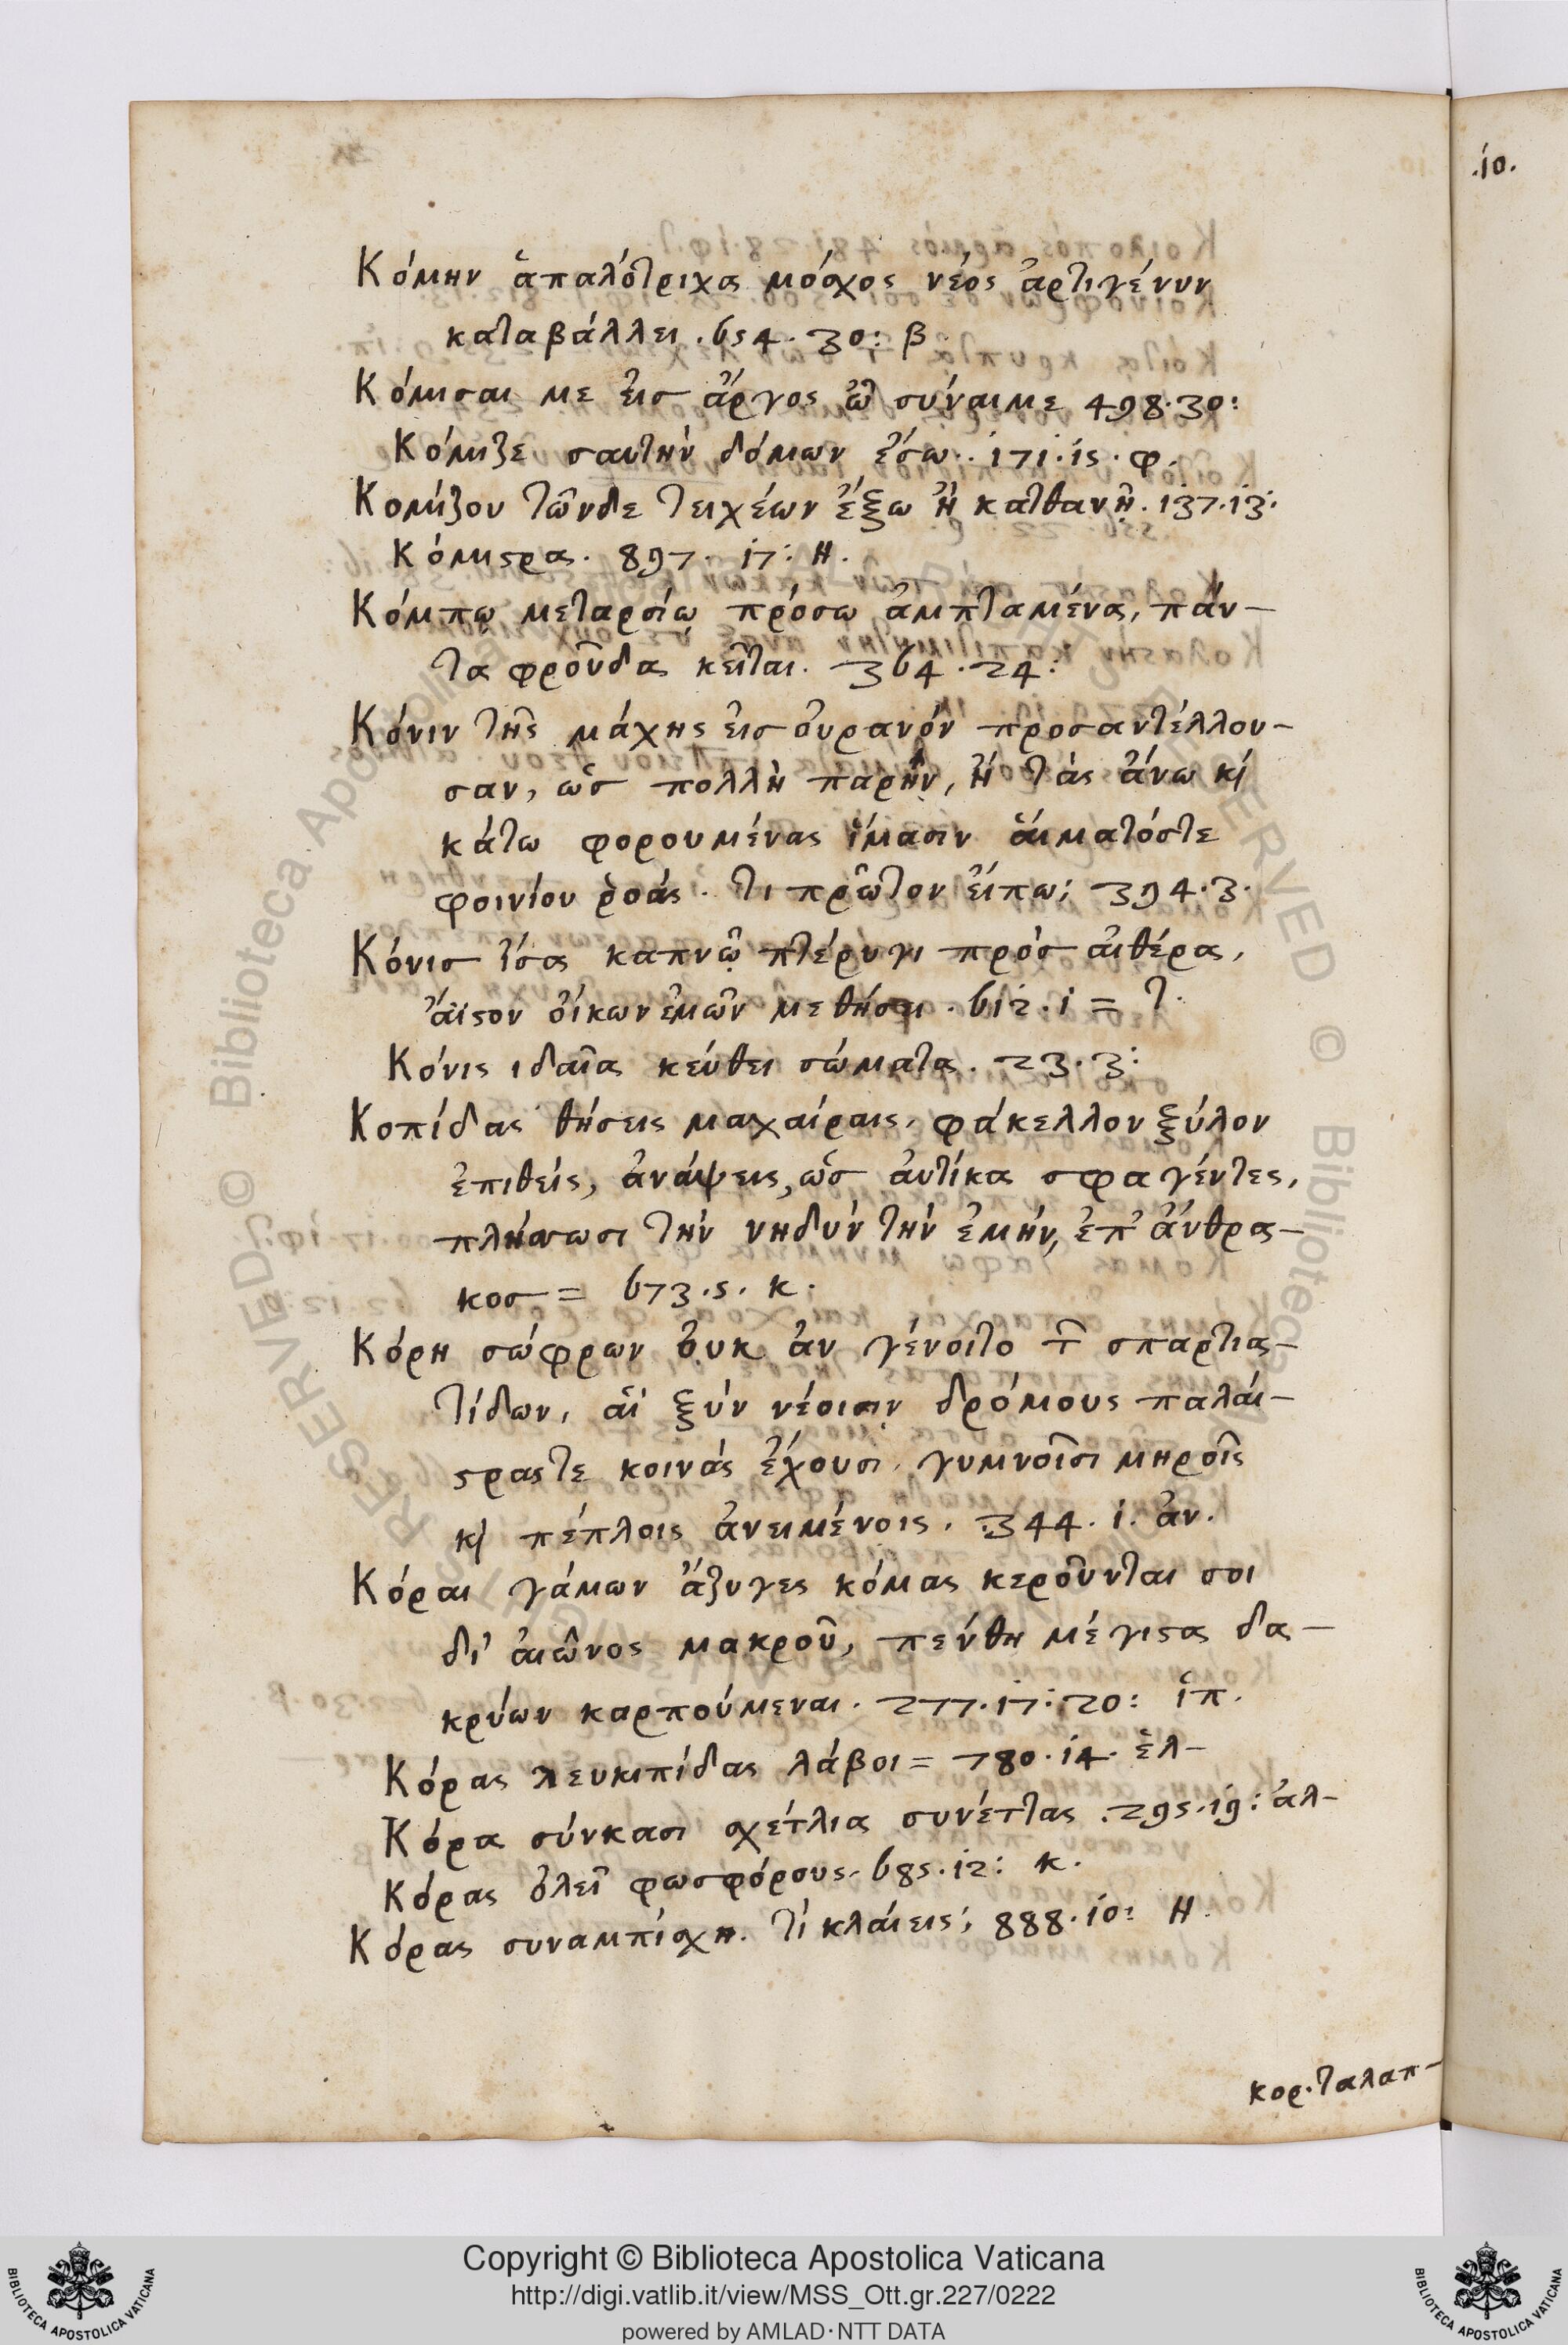 .ίο.
Κόμην ἁπαλότριχα μόσχος νέος ἀρτιγένυν
καταβάλλει . 654 . 30 : β
Κόμισαι με εἰσ ἄργος ὦ σύναιμε 498 . 30 :
Κόμιζε σαυτὴν δόμων ἔσω .. 171 . 15 . φ.
Κομίζου τῶνδε τειχέων ἔξω ἢ κατθανῇ . 137 . 13 :
Κόμιςρα . 897 . 17 : Η .
Κόμπῳ μεταρσίῳ πρόσω ἀμπταμένα, πάν-
τα φροῦδα κεῖται . 364 . 24 :
Κόνιν τῆς μάχης εἰσ οὐρανόν προσαντέλλου-
σαν, ὡσ πολλὴ παρῆν, ἢ τὰς ἄνω κὶ
κάτω φορουμένας ἱμασιν αἱματόστε
φοινίου ῥοάς . τι πρῶτον εἴπω; 394 . 3 .
Κόνισ ἴσα καπνῷ πτέρυγι πρὸσ αἰθέρα,
ἄϊςον οἴκων ἐμῶν με θήσει . 612 . 1 = τ .
Κόνις ιδαῖα κεύθει σώματα . 23 . 3 :
Κοπίδας θήσεις μαχαίραις, φάκελλον ξύλον
ἐπιθείς, ἀνάψεις, ὡσ ἀυτίκα σφαγέντες,
πλήσωσι τὴν νηδὺν τὴν ἐμήν, ἐπ' ἄνθρα-
κοσ = 673 . 5 . κ .
Κόρη σώφρων ὀυκ ἀν γένοιτο τ̑ σπαρτια-
τίδων, αἱ ξὺν νέοισιν δρόμους παλαί-
ςραςτε κοινὰς ἔχουσι, γυμνοῖσι μηροῖς
κὶ πέπλοις ἀνειμένοις . 344 . 1 . ἀν .
Κόραι γάμων ἄζυγες κόμας κεροῦνται σοι
δι' αἰῶνος μακροῦ, πένθη μέγιςα δα-
κρύων καρπούμεναι . 277 . 17 : 20 : ἱπ .
Κόρας λευκιπίδας λάβοι = 780 . 14 . ἑλ-
Κόρα σύνκασι σχέτλια συνέτλας . 295 . 19 : ἀλ-
Κόρας ὀλεῖ φωσφόρους . 685 . 12 : κ .
Κόρας συναμπίσχη . τί κλαίεις; 888 . 10 : Η .
κορ . ταλαπ-
Copyright © Biblioteca Apostolica Vaticana
http://digi.vatlib.it/view/MSS_Ott.gr.227/0222
powered by AMLAD·NTT DATA